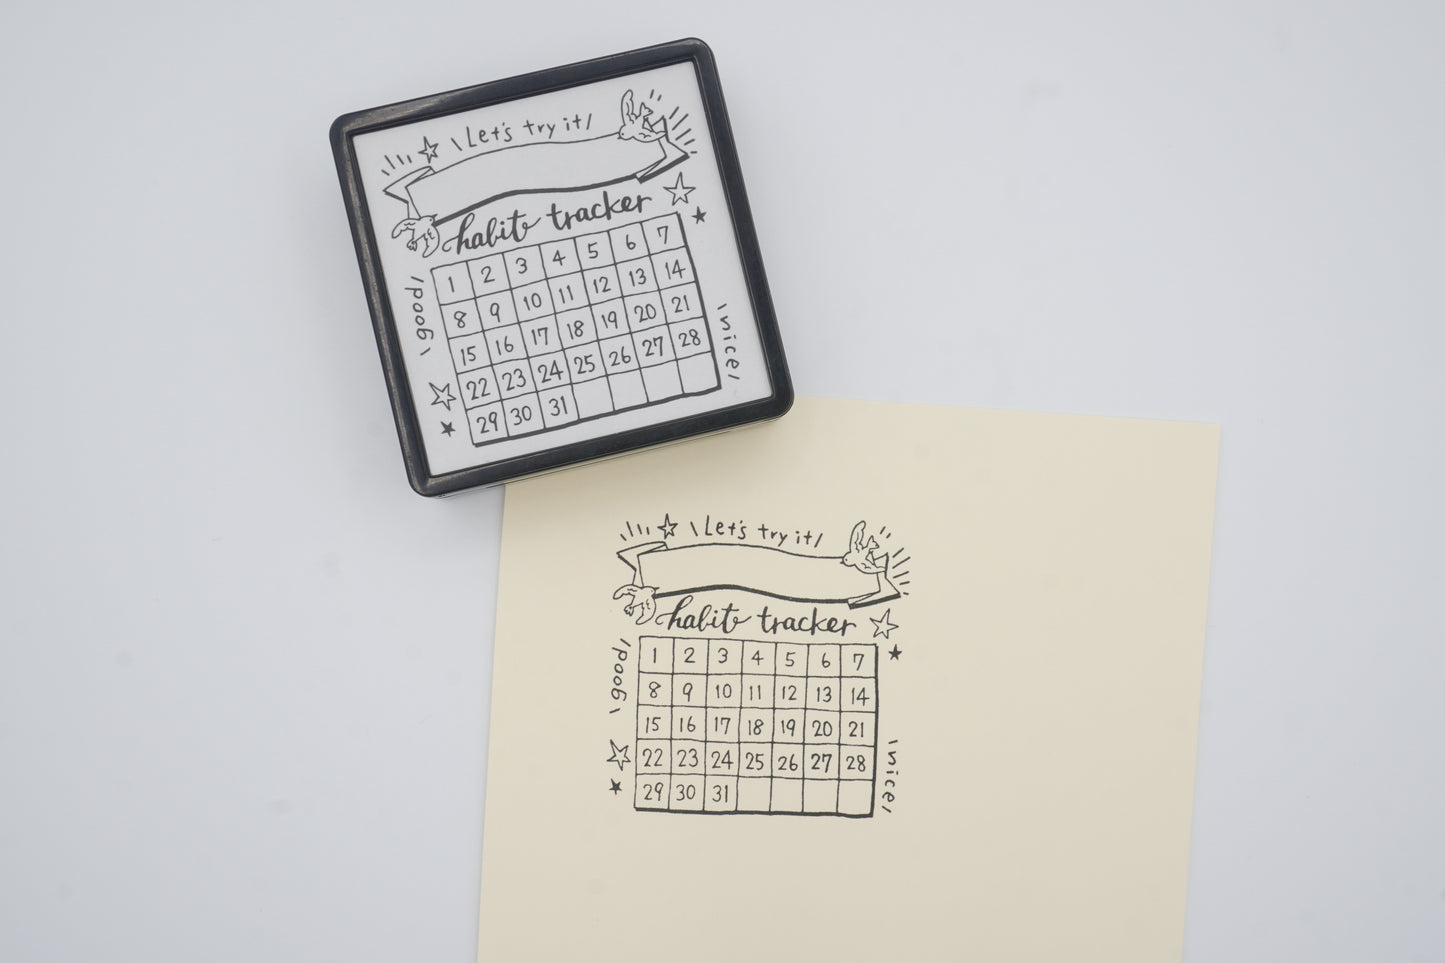 \Let's try it/
habit tracker
1 2 3 4 5 6 7
8 9 10 11 12 13 14
15 16 17 18 19 20 21
22 23 24 25 26 27 28
29 30 31
\good/
\nice/
\Let's try it/
habit tracker
1 2 3 4 5 6 7
8 9 10 11 12 13 14
15 16 17 18 19 20 21
22 23 24 25 26 27 28
29 30 31
\good/
\nice/